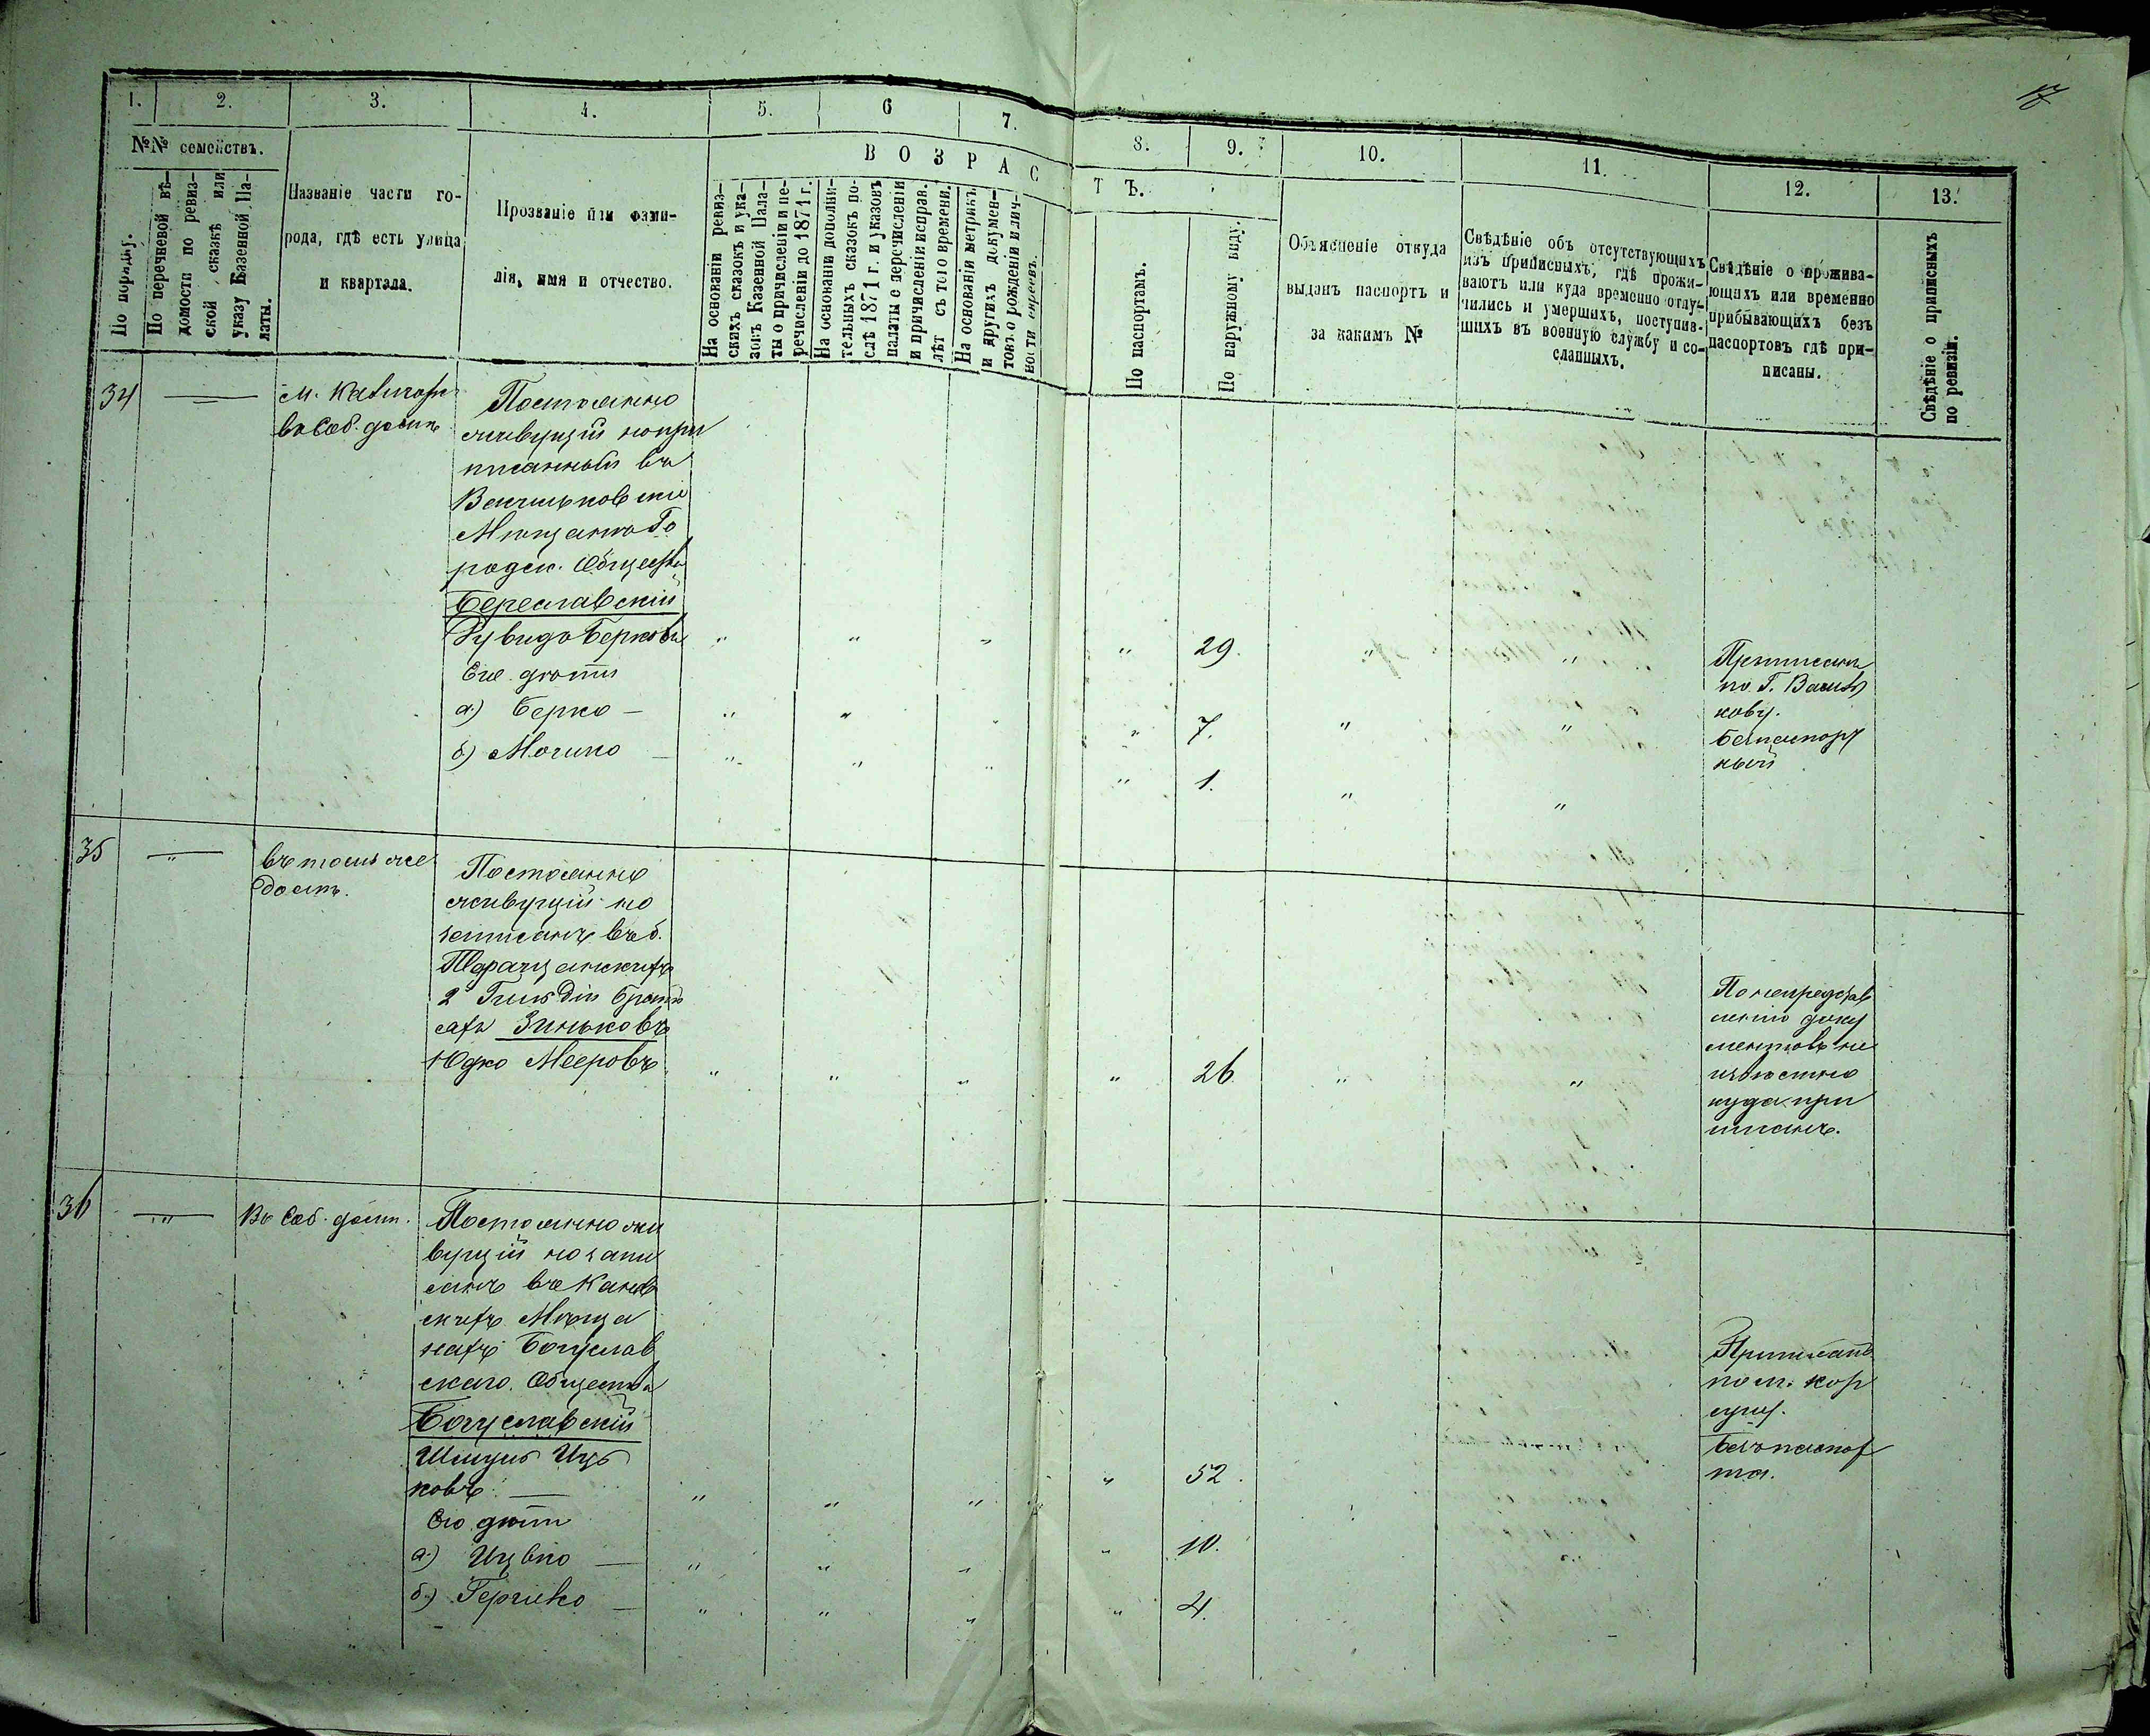 17
1. 2. 3. 4. 5. 6 7. 8. 9. 10. 11. 12. 13.
№№ семействъ.
По порядку.
По перечневой вѣ-
домости по ревиз-
ской сказкѣ или
указу Казенной Па-
латы.
Названіе части го-
рода, гдѣ есть улица
и квартала.
Прозваніе или фами-
лія, имя и отчество.
ВОЗРАСТЪ.
На основаніи ревиз-
скихъ сказокъ и ука-
зовъ Казенной Пала-
ты о причисленіи и пе-
речисленіи до 1871 г.
На основаніи дополни-
тельныхъ сказокъ по-
слѣ 1871 г. и указовъ
палаты о перечисленіи
и причисленіи исправ.
лѣт съ того времени.
На основаніи метрикъ
и другихъ докумен-
товъ о рожденіи и лич-
ности евреевъ.
По паспортамъ.
По наружному виду.
Объясненіе откуда
выданъ паспортъ и
за какимъ №
Свѣдѣніе объ отсутствующихъ
изъ приписныхъ, гдѣ прожи-
ваютъ или куда временно отлу-
чились и умершихъ, поступив-
шихъ въ военную службу и со-
сланныхъ.
Свѣдѣніе о прожива-
ющихъ или временно
прибывающихъ безъ
паспортовъ гдѣ при-
писаны.
Свѣдѣніе о приписныхъ
по ревизіи.
34
во Соб. домѣ
Постоянно
живущій но при
писанный въ
Васильковскіе
Мищане Го
родск. Общества
Береславскій
Рувидъ Берковъ " " " " 29. " "
Его дѣти
а) Берко — " " " " 7. " "
б) Мошко — " " " " 1. " "
Приписанъ
по Г. Василь
кову.
Безпаспорт
ный
35
" въ томъ же
домѣ.
Постоянно
живущій но
записанъ въ б.
Таращанскихъ
2 Гильдіи
Зиньковъ
Юдко Мееровъ " " " " 26. " "
По непредстав
ленію доку
ментовъ не
извѣстно
куда при
писанъ.
36
" Въ Соб. домѣ.
Постоянно жи
вущій но запи
санъ въ Канев
скихъ Мѣща
нахъ Богуслав
скаго Общества
Богуславскій
Шмуль Иць
ковъ — " " " " 52.
Его дѣти
а) Ицько — " " " " 10.
б) Гершко — " " " " 4.
Приписанъ
по м. Кор
суну.
Безъ паспор
та.